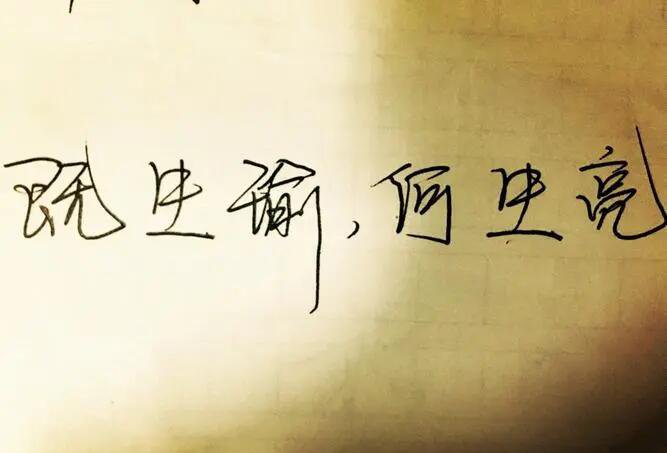 既生瑜,何生亮